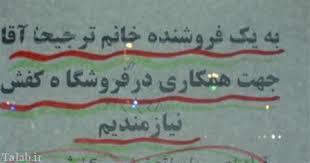 به یک فروشنده خانم ترجیحاً آقا
جهت همکاری در فروشگاه کفش
نیازمندیم
Talab.ir